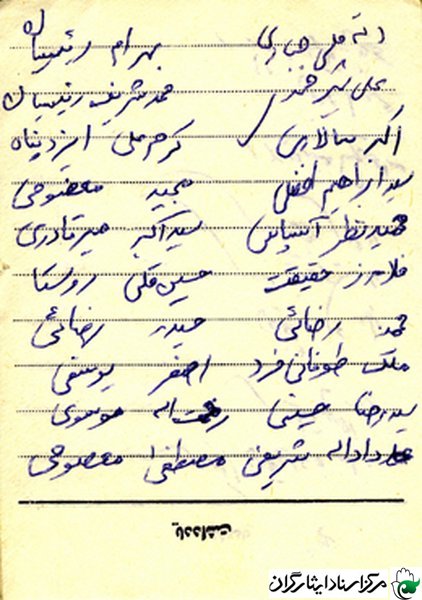 قلی جباری بهرام رئیسیان
علی شیر محمد محمد شریف رئیسیان
اکبر سالاری کرم علی ایزدپناه
سید ابراهیم افضلی مجید معصومی
حمید نظر آسپاس سید اکبر میرقادری
فلامرز حقیقت حسین قلی روستا
محمد رضائی حیدر رضائی
ملک طوفانی فرد اصغر یوسفی
سید رضا حسینی رحمت اله موسوی
داداله شریفی مصطفی معصومی
یادداشت
مرکز اسناد ایثارگران